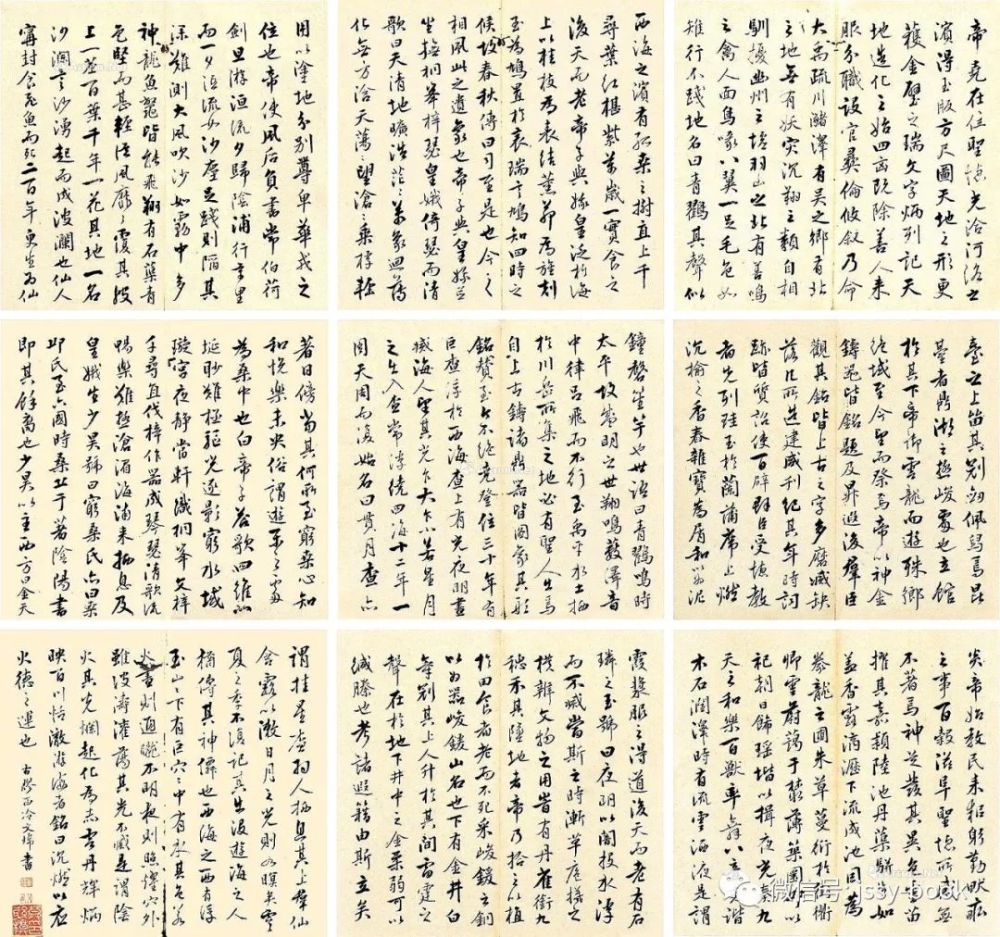 帝堯在位聖德光洽河洛之
濱得玉版方尺圖天地之形更
獲金璧之瑞文字炳列記天
地造化之始四凶既除善人来
服分職設官彝倫攸叙乃命
大禹疏川瀦澤有吴之鄉有北
之地無有妖灾沉翔之類自相
馴擾幽州之墟羽山之北有善鳴
之禽人面鳥喙八翼一足毛色如
雉行不踐地名曰青鸛其聲似
西海之濱有孤桑之樹直上千
尋葉紅椹紫萬歲一實食之
後天而老帝子與娥皇泛於海
上以桂枝為表結薰茅為旌刻
玉為鳩置於表端言鳩知四時之
候故春秋傳曰司至是也今之
相風此之遺象也帝子與皇娥並
坐撫桐峯梓瑟皇娥倚瑟而清
歌曰天清地曠浩茫茫萬象迴薄
化無方浛天蕩蕩望滄滄乘桴輕
用以塗地分別尊卑華戎之
位也帝使風后負書常伯荷
劍旦游洹流夕歸陰浦行萬里
而一夕洹流如沙塵足踐則陷其
深難測大風吹沙如霧中多
神龍魚鼈皆能飛翔有石蕖青
色堅而甚輕從風靡靡覆其波
上一莖百葉千年一花其地一名
沙瀾言沙湧起而成波瀾也仙人
寗封食飛魚而死二百年更生為仙
臺之上笛其刻劍佩舄焉昆
臺者鼎湖之極峻處也立館
於其下帝御雲龍而遊殊鄉
絶域至今望而祭焉帝以神金
鑄器皆銘題及昇遐後羣臣
觀其銘皆上古之字多磨滅缺
落凡所造建咸刊紀其年時詞
跡皆質詔使百辟羣臣受德教
者先列珪玉於蘭蒲席上燃
沉榆之香舂雜寶為屑和以為泥
鐘磬笙竽也世語曰青鸛鳴時
太平故盛明之世翔鳴藪澤音
中律吕飛而不行至禹平水土栖
於川岳所集之地必有聖人出焉
自上古鑄諸鼎器皆圖象其形
銘贊至今不絶堯登位三十年有
巨查浮於西海查上有光夜明晝
滅海人望其光乍大乍小若星月
之出入查常浮繞四海十二年一
周天周而復始名曰貫月查亦
著日傍當其何所至窮桑心知
和悦樂未央俗謂遊樂之處
為桑中也白帝子答歌四維八
埏眇難極驅光逐影窮水域
璇宮夜静當軒織桐峯文梓
千尋直伐梓作器成琴瑟清歌流
暢樂難極滄湄海浦来栖息及
皇娥生少昊號曰窮桑氏亦曰桑
邱氏至六國時桑丘子著陰陽書
即其餘裔也少昊以主西方曰金天
炎帝始教民耒耜躬勤畎畝
之事百穀滋阜聖德所感無
不著焉神芝發其異色靈苗
擢其嘉穎陸池丹蕖駢生如
蓋香露滴瀝下流成池因為
豢龍之圃朱草蔓衍於街衢
卿雲蔚藹于叢薄築圓丘以
祀朝日飾瑶堦以揖夜光奏九
天之和樂百獸率舞八音克諧
木石潤澤時有流雲洒液是謂
霞漿服之得道後天而老有石
璘之玉號曰夜明以闇投水浮
而不滅當斯之時漸革庖犧之
樸辨文物之用時有丹雀銜九
穗禾其墜地者帝乃拾之以植
於田食者老而不死采峻鍰之銅
以為器峻鍰山名也下有金井白
氣冠其上人升於其間雷霆之
聲在於地下井中之金柔弱可以
緘縢也考諸遐籍由斯立矣
謂挂星查羽人栖息其上羣仙
含露以漱日月之光則如暝矣虞
夏之季不復記其出没遊海之人
猶傳其神偉也西海之西有浮
玉山山下有巨穴穴中有水其色若
火晝則通曨不明夜則照燿穴外
雖波濤灌蕩其光不滅是謂陰
火其光爛起化為赤雲丹輝炳
映百川恬澈游海者銘曰沉燃以应
火德之運也 書
微信号: jssy-book